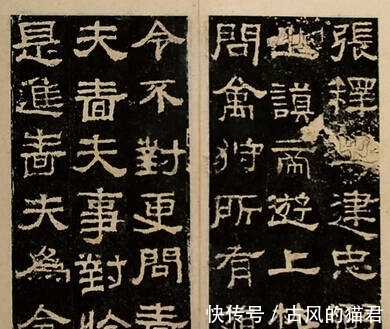 張釋建忠
之謨帝遊上林
問禽狩所有
令不對更問嗇
夫嗇夫事對於
是進嗇夫為令
快传号/古风的猫君